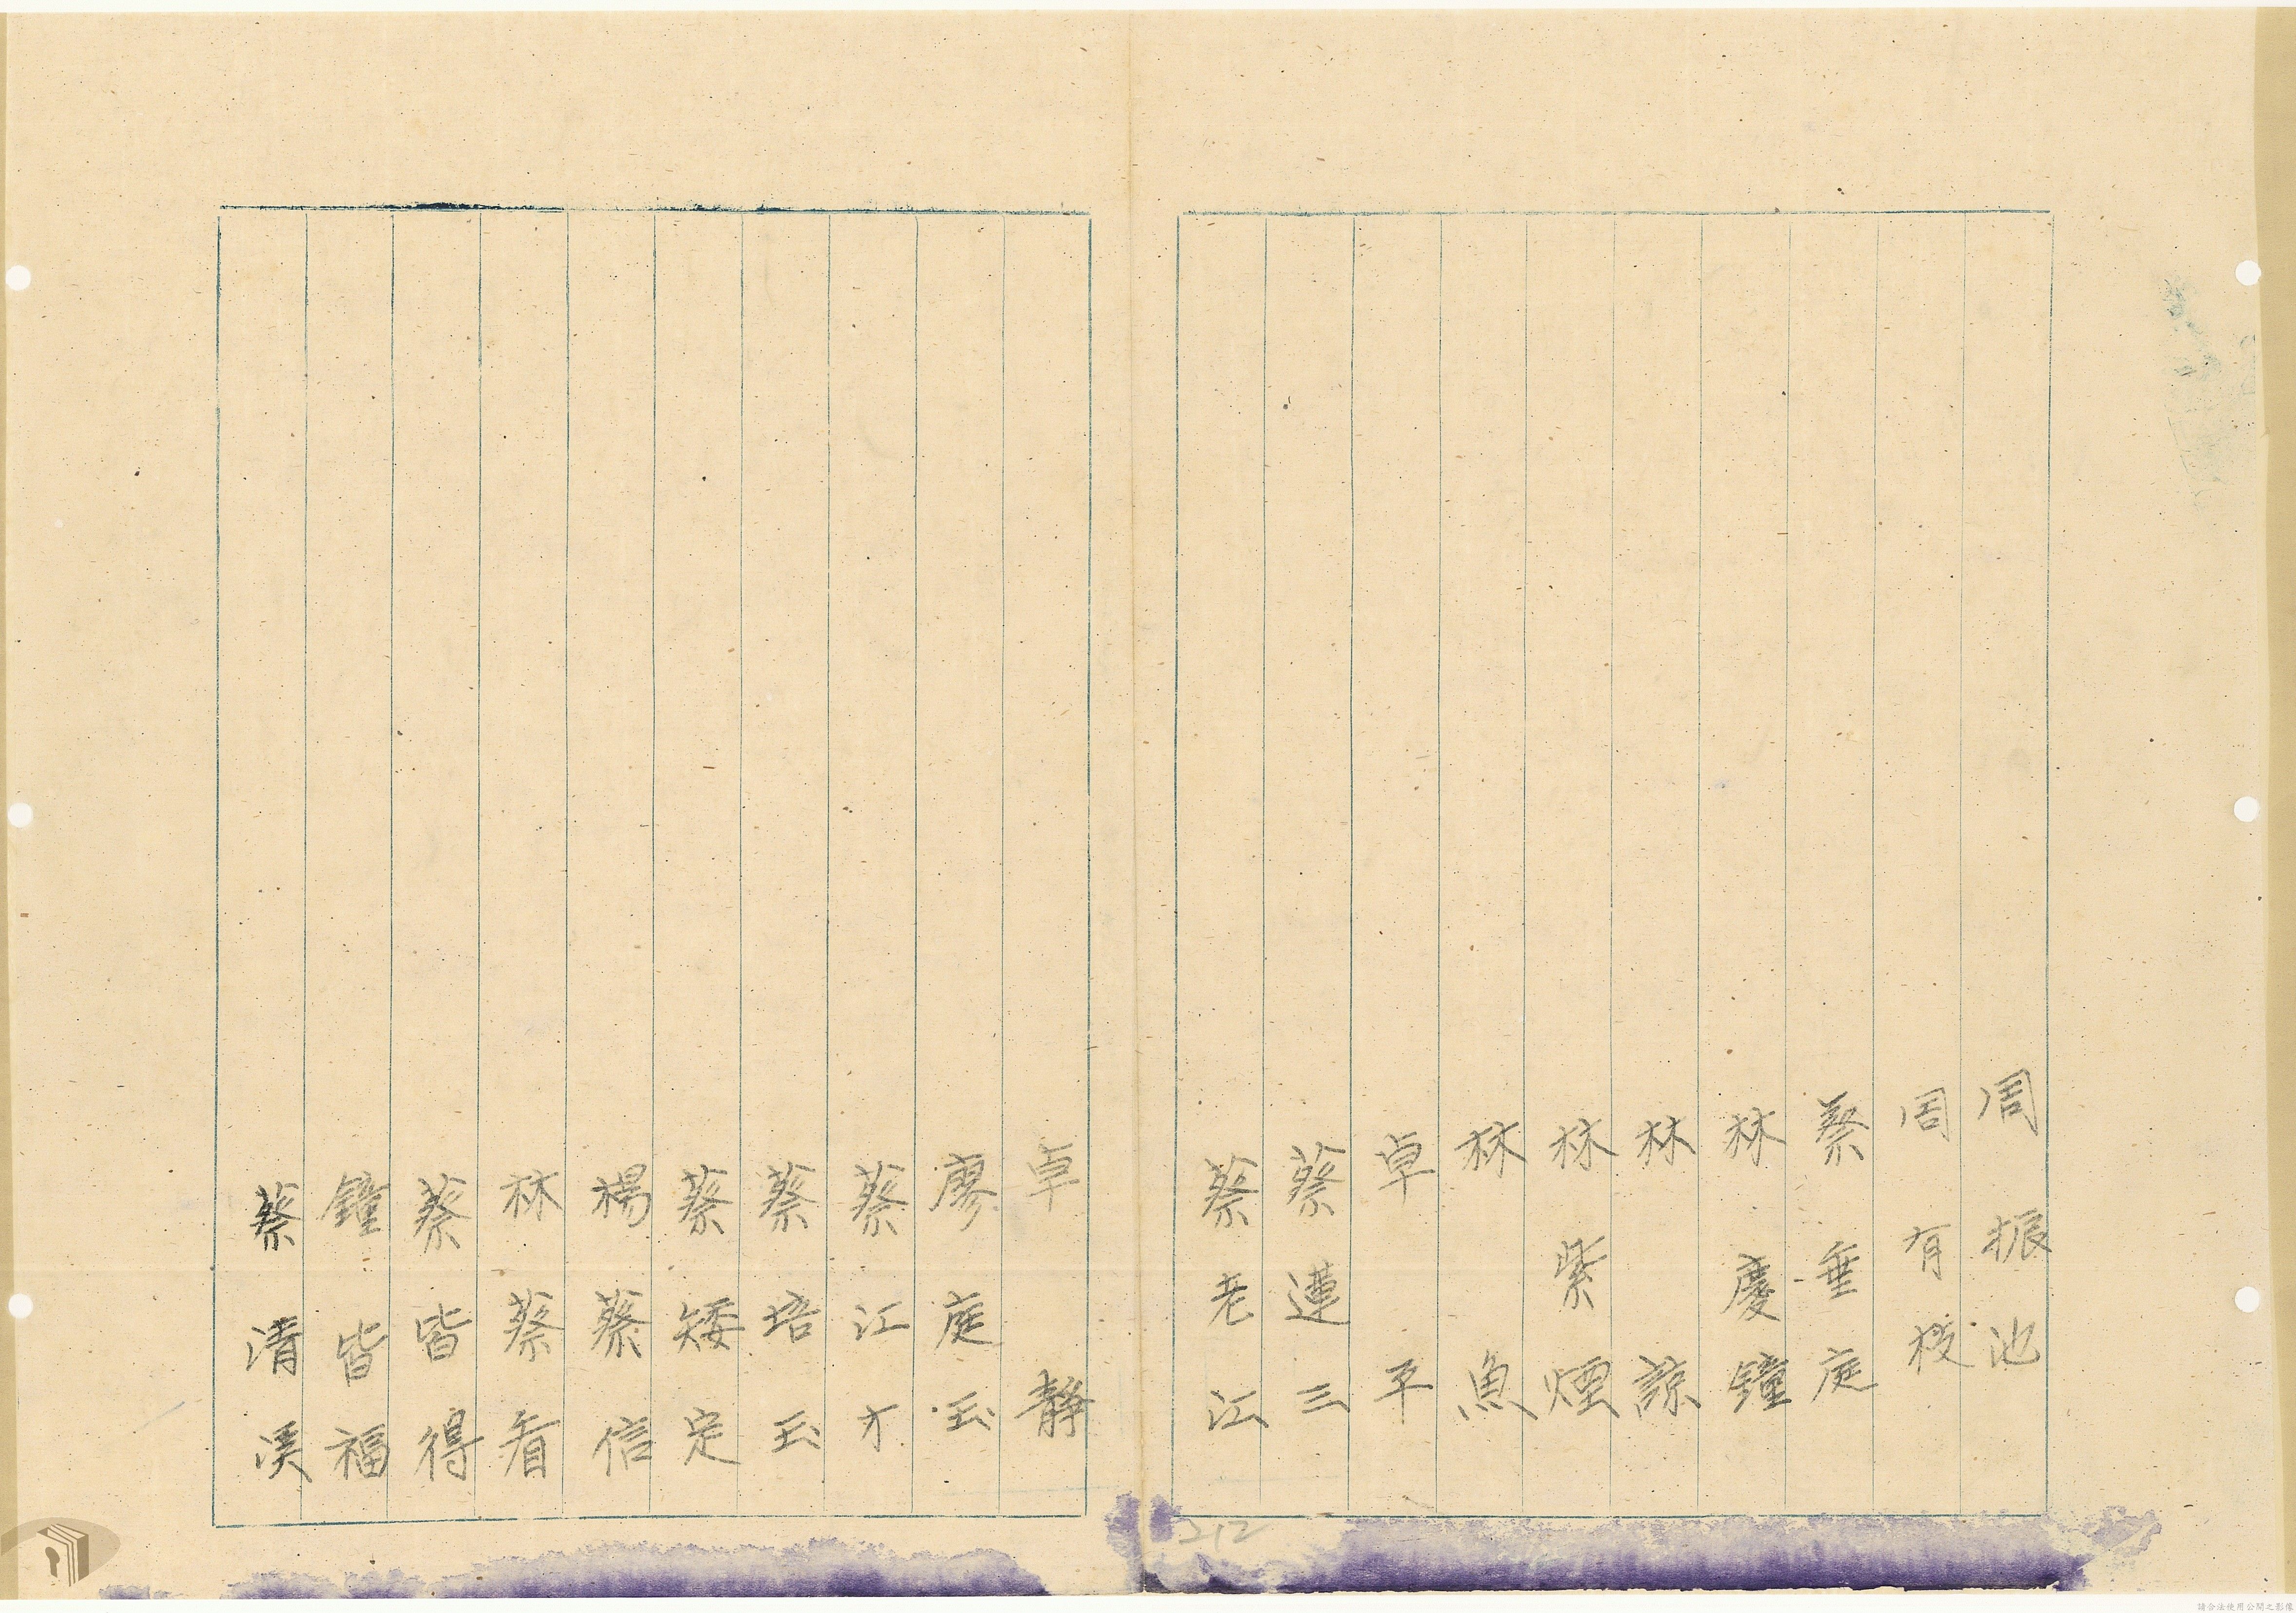 周振池
周有校
蔡垂庭
林慶鐘
林諒
林紫煙
林魚
卓平
蔡連三
蔡老江
卓静
廖庭玉
蔡江才
蔡培玉
蔡矮定
楊蔡信
林蔡看
蔡皆得
鐘皆福
蔡清溪
212
請合法使用公開之影像